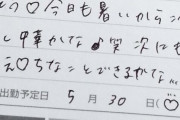 の♡今日も暑いから
し中華かな♪笑 次にも
え♡ちなことできるかな
出勤予定日 5月30日(♡